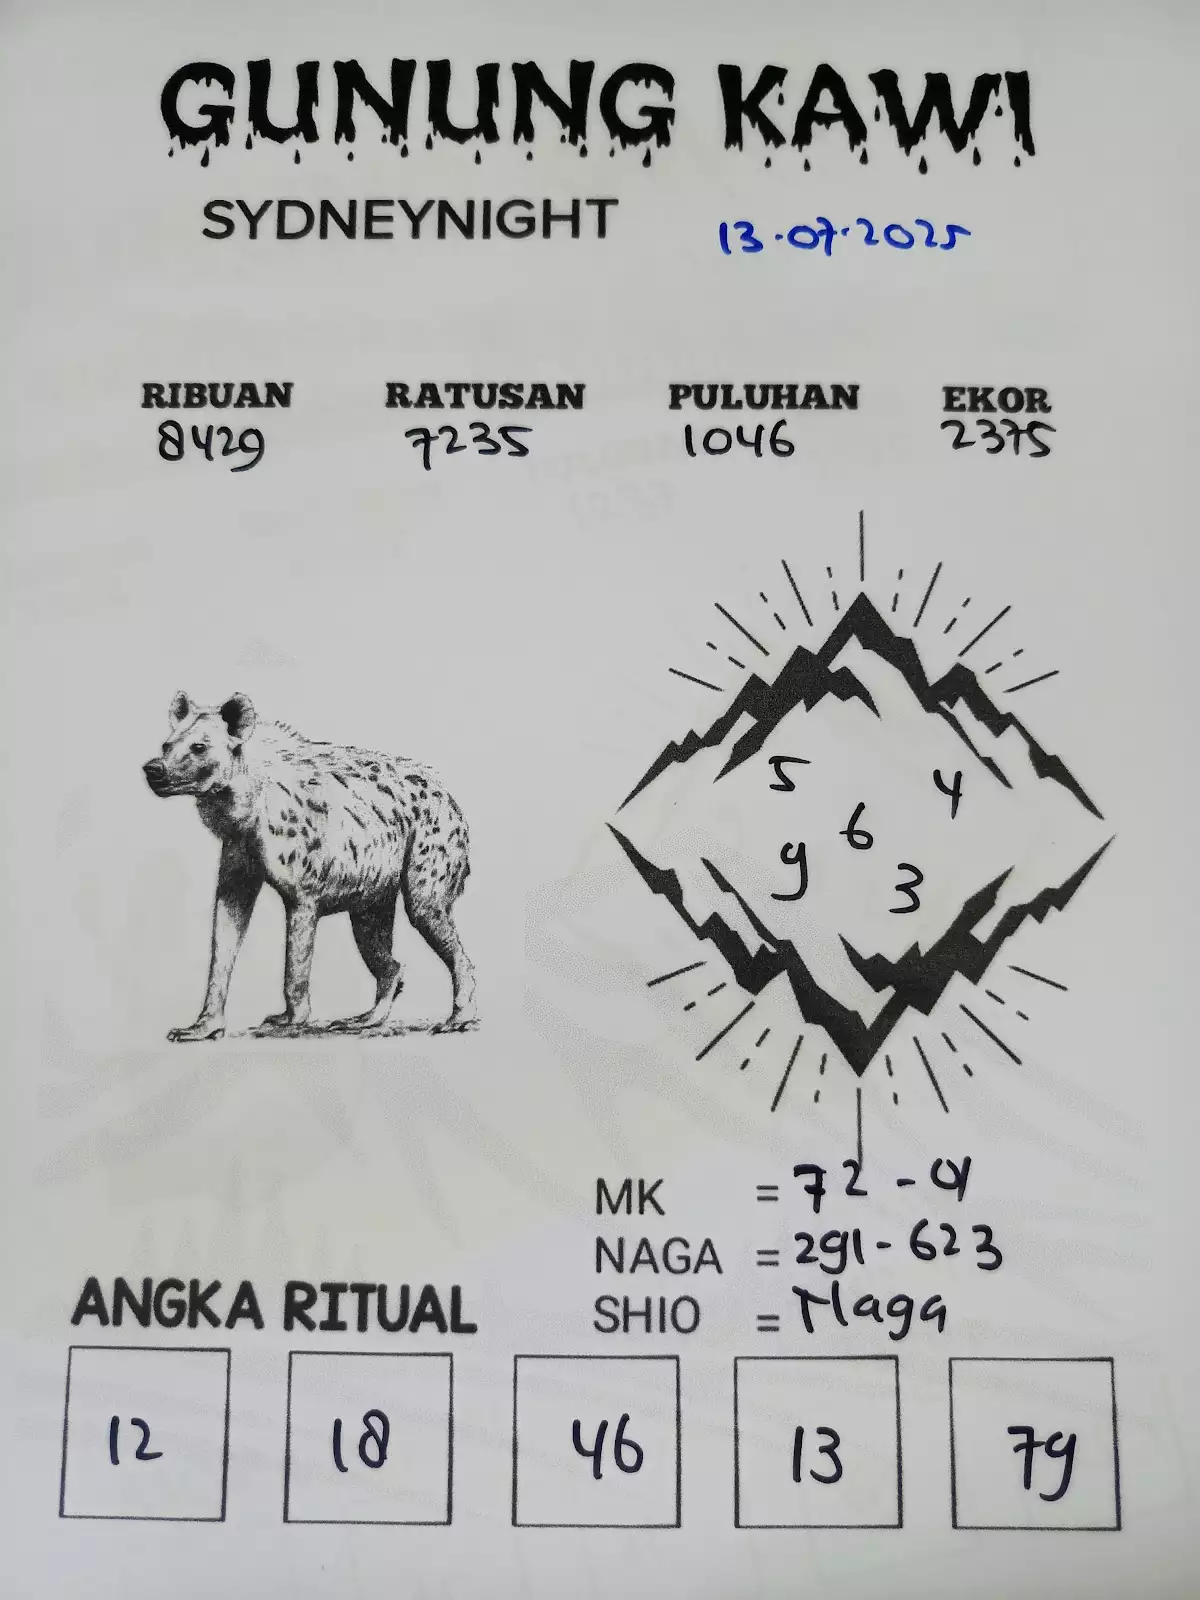 GUNUNG KAWI
SYDNEYNIGHT 13.07.2025
RIBUAN RATUSAN PULUHAN EKOR
8429 7235 1046 2375
5 4
6
9 3
MK = 72 - 01
NAGA = 291 - 623
SHIO = Naga
ANGKA RITUAL
12 18 46 13 79